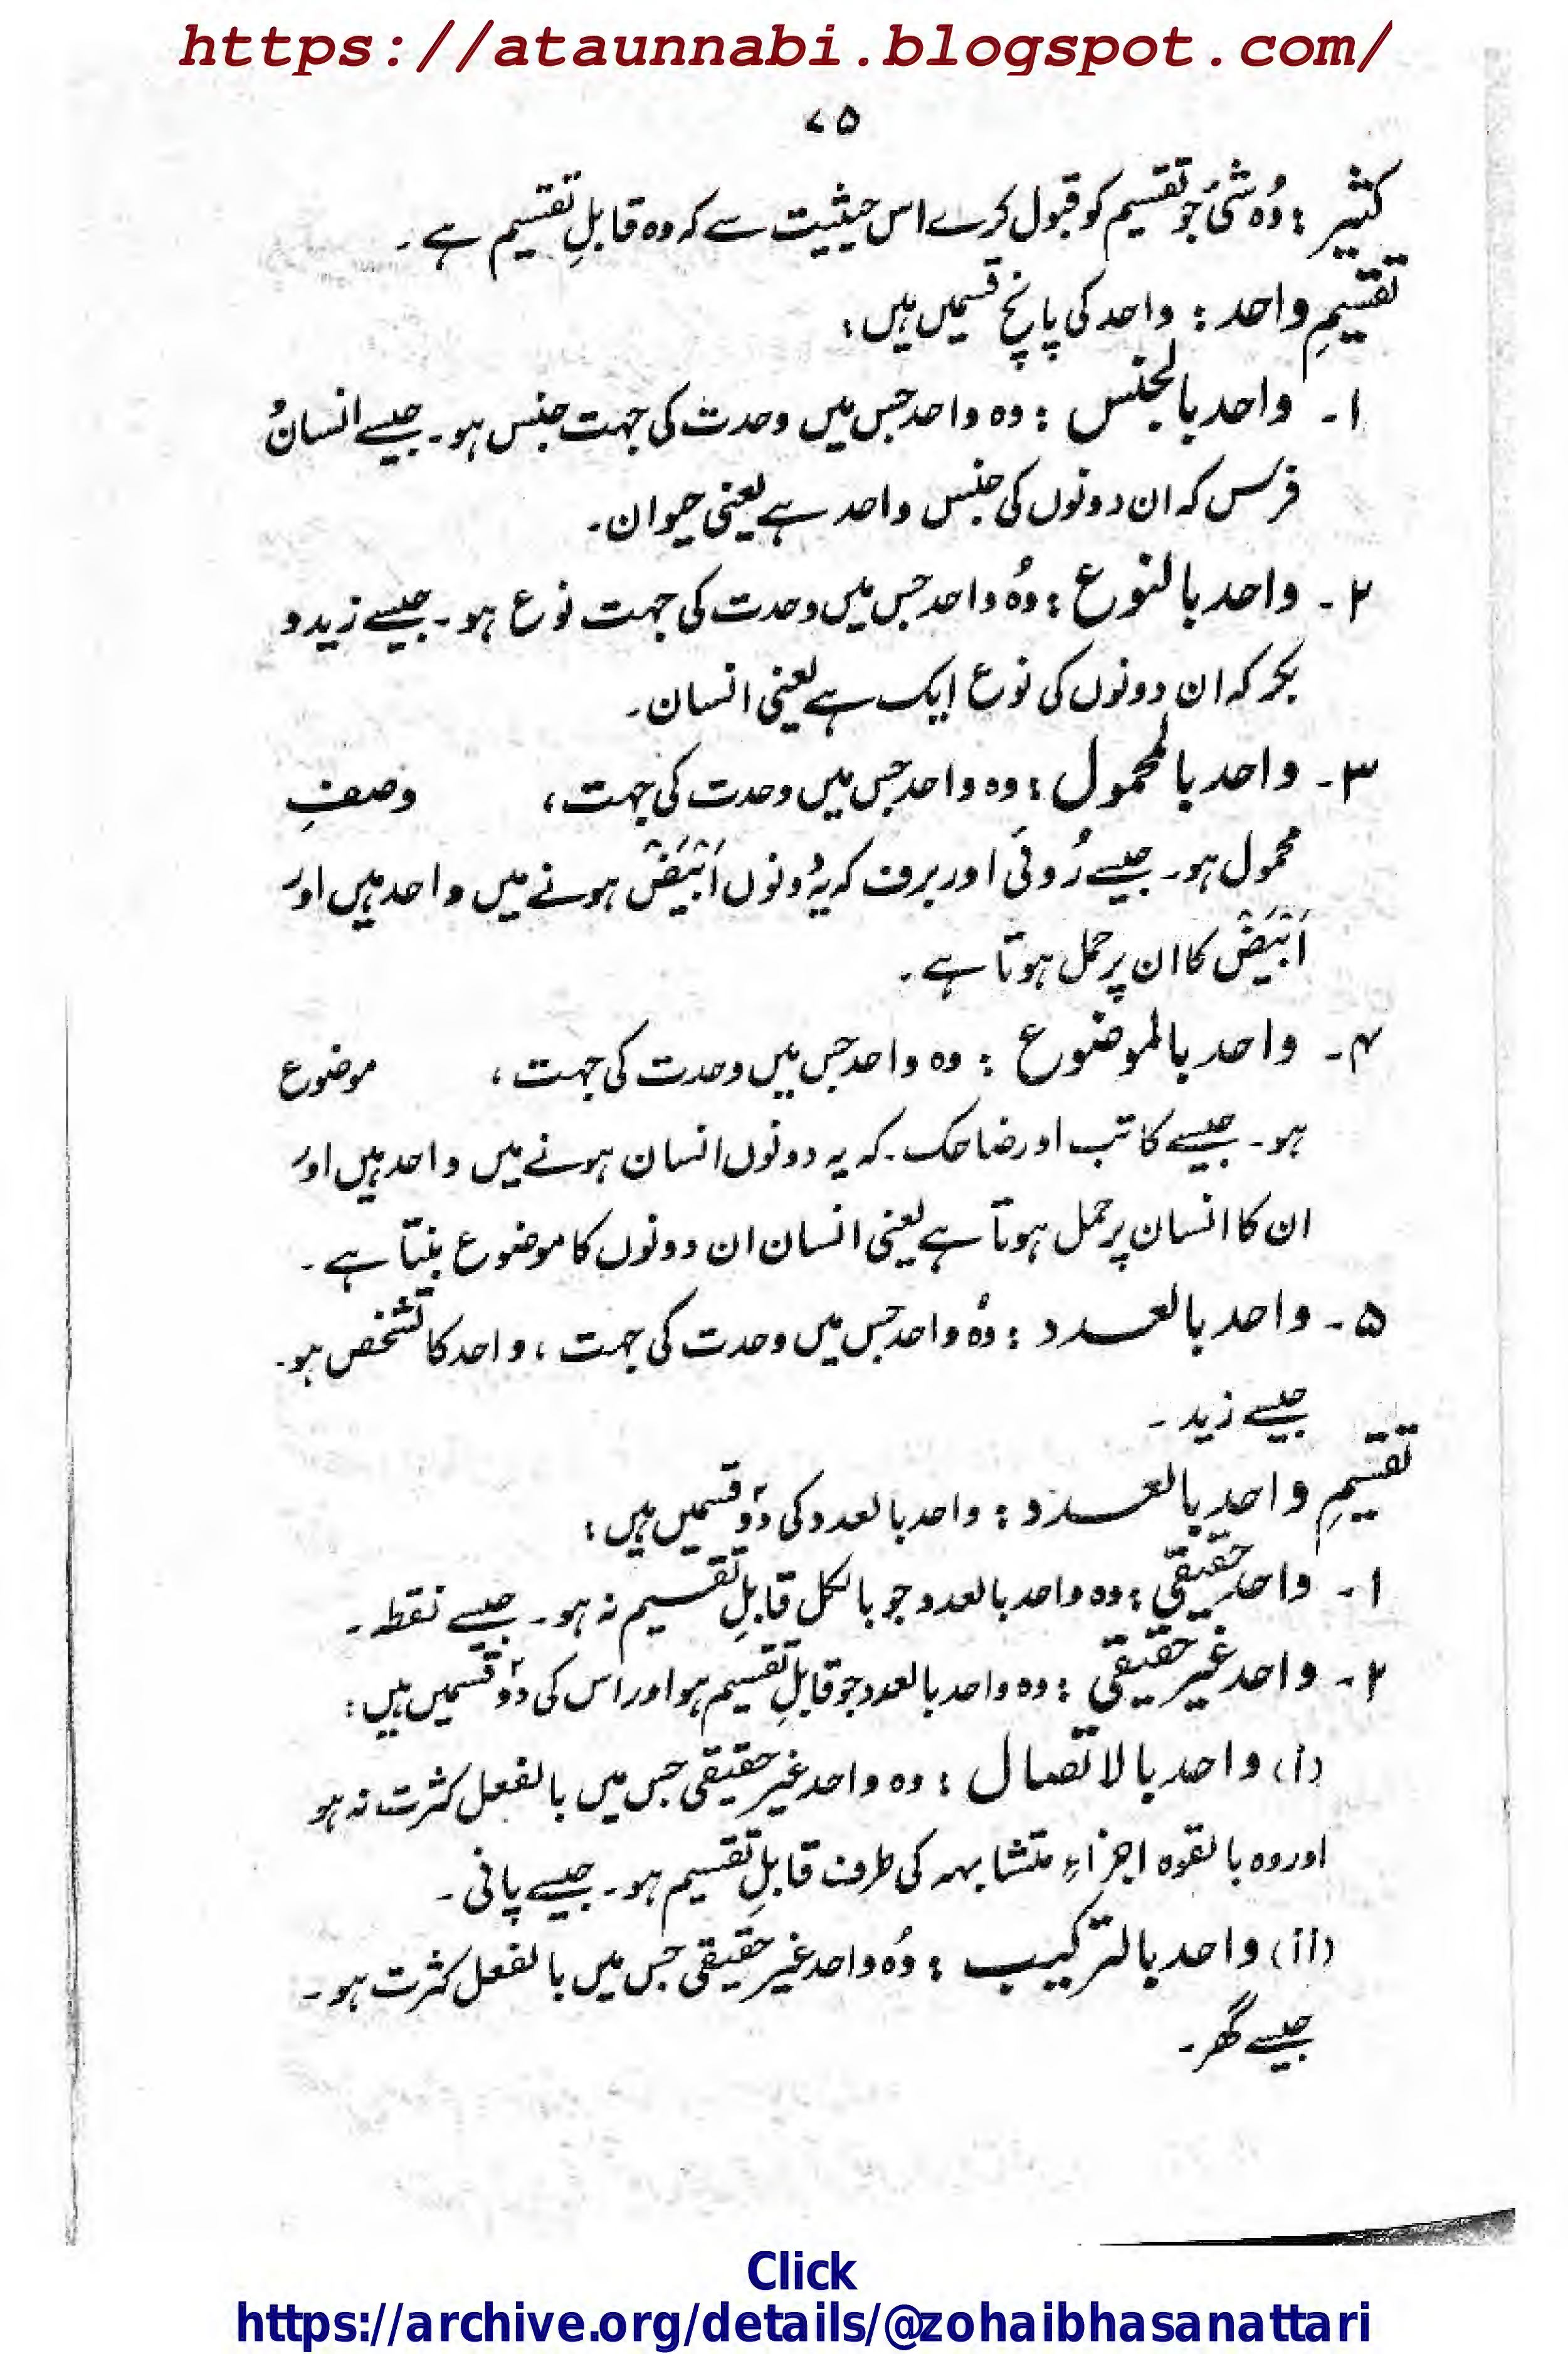 https://ataunnabi.blogspot.com/
۷۵
کثیر : وُہ شئ جو تقسیم کو قبول کرے اس حیثیت سے کہ وہ قابلِ تقسیم ہے ۔
تقسیمِ واحد : واحد کی پانچ قسمیں ہیں :
۱۔ واحد بالجنس : وہ واحد جس میں وحدت کی جہت جنس ہو ۔ جیسے انسان وُ
فرس کہ ان دونوں کی جنس واحد ہے یعنی حیوان ۔
۲۔ واحد بالنوع : وُہ واحد جس میں وحدت کی جہت نوع ہو ۔ جیسے زید و
بکر کہ ان دونوں کی نوع ایک ہے یعنی انسان ۔
۳۔ واحد بالمحمول : وہ واحد جس میں وحدت کی جہت ، وصفِ
محمول ہو ۔ جیسے رُوئی اور برف کہ یہ دونوں اَبْیَضْ ہونے میں واحد ہیں اور
اَبْیَضْ کا ان پر حمل ہوتا ہے ۔
۴۔ واحد بالموضوع : وہ واحد جس میں وحدت کی جہت ، موضوع
ہو ۔ جیسے کاتب اور ضاحک ۔ کہ یہ دونوں انسان ہونے میں واحد ہیں اور
ان کا انسان پر حمل ہوتا ہے یعنی انسان ان دونوں کا موضوع بنتا ہے ۔
۵۔ واحد بالعدد : وُہ واحد جس میں وحدت کی جہت ، واحد کا تشخص ہو ۔
جیسے زید ۔
تقسیمِ واحد بالعدد : واحد بالعدد کی دو قسمیں ہیں :
۱۔ واحد حقیقی : وہ واحد بالعدد جو بالکل قابلِ تقسیم نہ ہو ۔ جیسے نقطہ ۔
۲۔ واحد غیر حقیقی : وہ واحد بالعدد جو قابلِ تقسیم ہو اور اس کی دو قسمیں ہیں :
(i) واحد بالاتصال : وہ واحد غیر حقیقی جس میں بالفعل کثرت نہ ہو
اور وہ بالقوہ اجزاءِ متشابہہ کی طرف قابلِ تقسیم ہو ۔ جیسے پانی ۔
(ii) واحد بالترکیب : وُہ واحد غیر حقیقی جس میں بالفعل کثرت ہو ۔
جیسے گھر ۔
Click
https://archive.org/details/@zohaibhasanattari